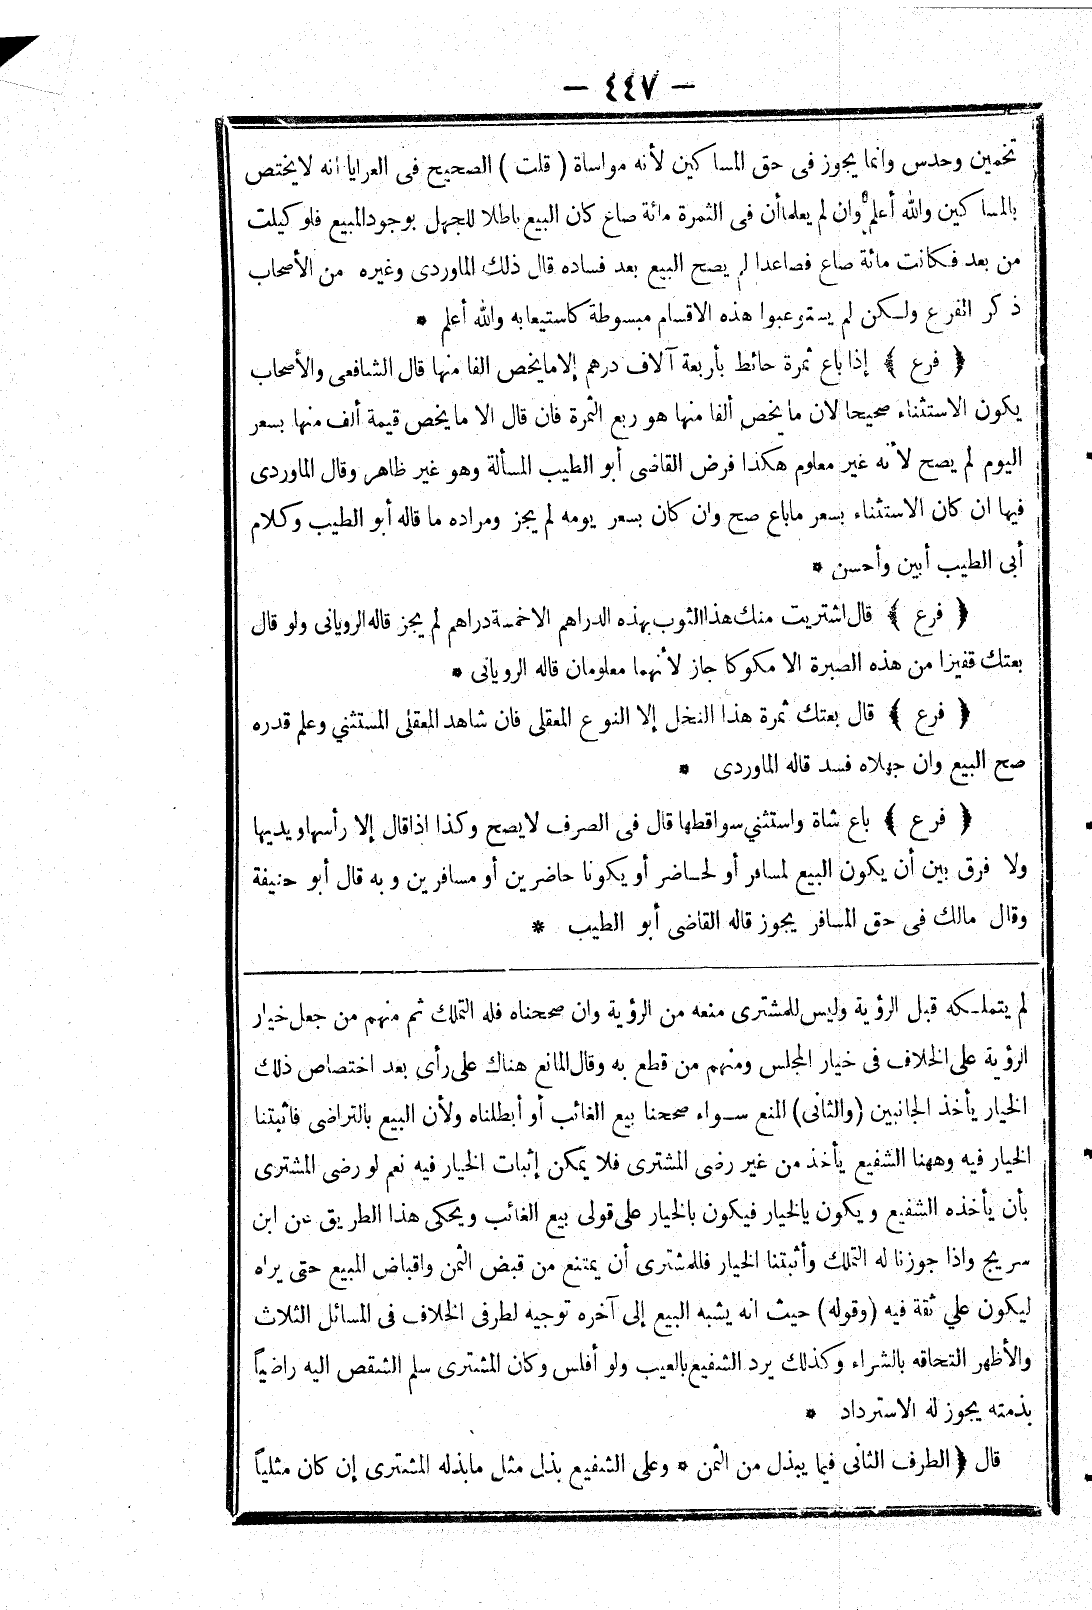 — ٤٤٧ —
تخمين وحدس وانما يجوز فى حق المساكين لأنه مواساة ( قلت ) الصحيح فى العرايا انه لايختص
بالمساكين والله أعلم وان لم يعلما أن فى الثمرة مائة صاع كان البيع باطلا للجهل بوجود المبيع فلو كيلت
من بعد فكانت مائة صاع فصاعدا لم يصح البيع بعد فساده قال ذلك الماوردى وغيره من الأصحاب
ذكر الفرع ولكن لم يستوعبوا هذه الاقسام مبسوطة كاستيعابه والله أعلم *
﴿ فرع ﴾ إذا باع ثمرة حائط بأربعة آلاف درهم إلا مايخص الفا منها قال الشافعى والأصحاب
يكون الاستثناء صحيحا لان ما يخص ألفا منها هو ربع الثمرة فان قال الا ما يخص قيمة ألف منها بسعر
اليوم لم يصح لأنه غير معلوم هكذا فرض القاضى أبو الطيب المسألة وهو غير ظاهر وقال الماوردى
فيها ان كان الاستثناء بسعر ماباع صح وان كان بسعر يومه لم يجز ومراده ما قاله أبو الطيب وكلام
أبى الطيب أبين وأحسن *
﴿ فرع ﴾ قال اشتريت منك هذا الثوب بهذه الدراهم الا خمسة دراهم لم يجز قاله الرويانى ولو قال
بعتك قفيزا من هذه الصبرة الا مكوكا جاز لأنهما معلومان قاله الرويانى *
﴿ فرع ﴾ قال بعتك ثمرة هذا النخل إلا النوع المعقلى فان شاهد المعقلى المستثني وعلم قدره
صح البيع وان جهلاه فسد قاله الماوردى *
﴿ فرع ﴾ باع شاة واستثني سواقطها قال فى الصرف لايصح وكذا اذا قال إلا رأسها ويديها
ولا فرق بين أن يكون البيع لمسافر أو لحاضر أو يكونا حاضرين أو مسافرين وبه قال أبو حنيفة
وقال مالك فى حق المسافر يجوز قاله القاضى أبو الطيب *
لم يتملكه قبل الرؤية وليس للمشترى منعه من الرؤية وان صححناه فله التملك ثم منهم من جعل خيار
الرؤية على الخلاف فى خيار المجلس ومنهم من قطع به وقال المانع هناك على رأى بعد اختصاص ذلك
الخيار يأخذ الجانبين (والثانى) المنع سواء صححنا بيع الغائب أو أبطلناه ولأن البيع بالتراضى فاثبتنا
الخيار فيه وههنا الشفيع يأخذ من غير رضى المشترى فلا يمكن إثبات الخيار فيه نعم لو رضى المشترى
بأن يأخذه الشفيع ويكون بالخيار فيكون بالخيار على قولى بيع الغائب ويحكى هذا الطريق عن ابن
سريج واذا جوزنا له التملك وأثبتنا الخيار فللمشترى أن يمتنع من قبض الثمن واقباض المبيع حتى يراه
ليكون علي ثقة فيه (وقوله) حيث انه يشبه البيع إلى آخره توجيه لطرفى الخلاف فى المسائل الثلاث
والأظهر التحاقه بالشراء وكذلك يرد الشفيع بالعيب ولو أفلس وكان المشترى سلم الشقص اليه راضياً
بذمته يجوز له الاسترداد *
قال ﴿ الطرف الثانى فيما يبذل من الثمن * وعلى الشفيع بذل مثل مابذله المشترى إن كان مثلياً